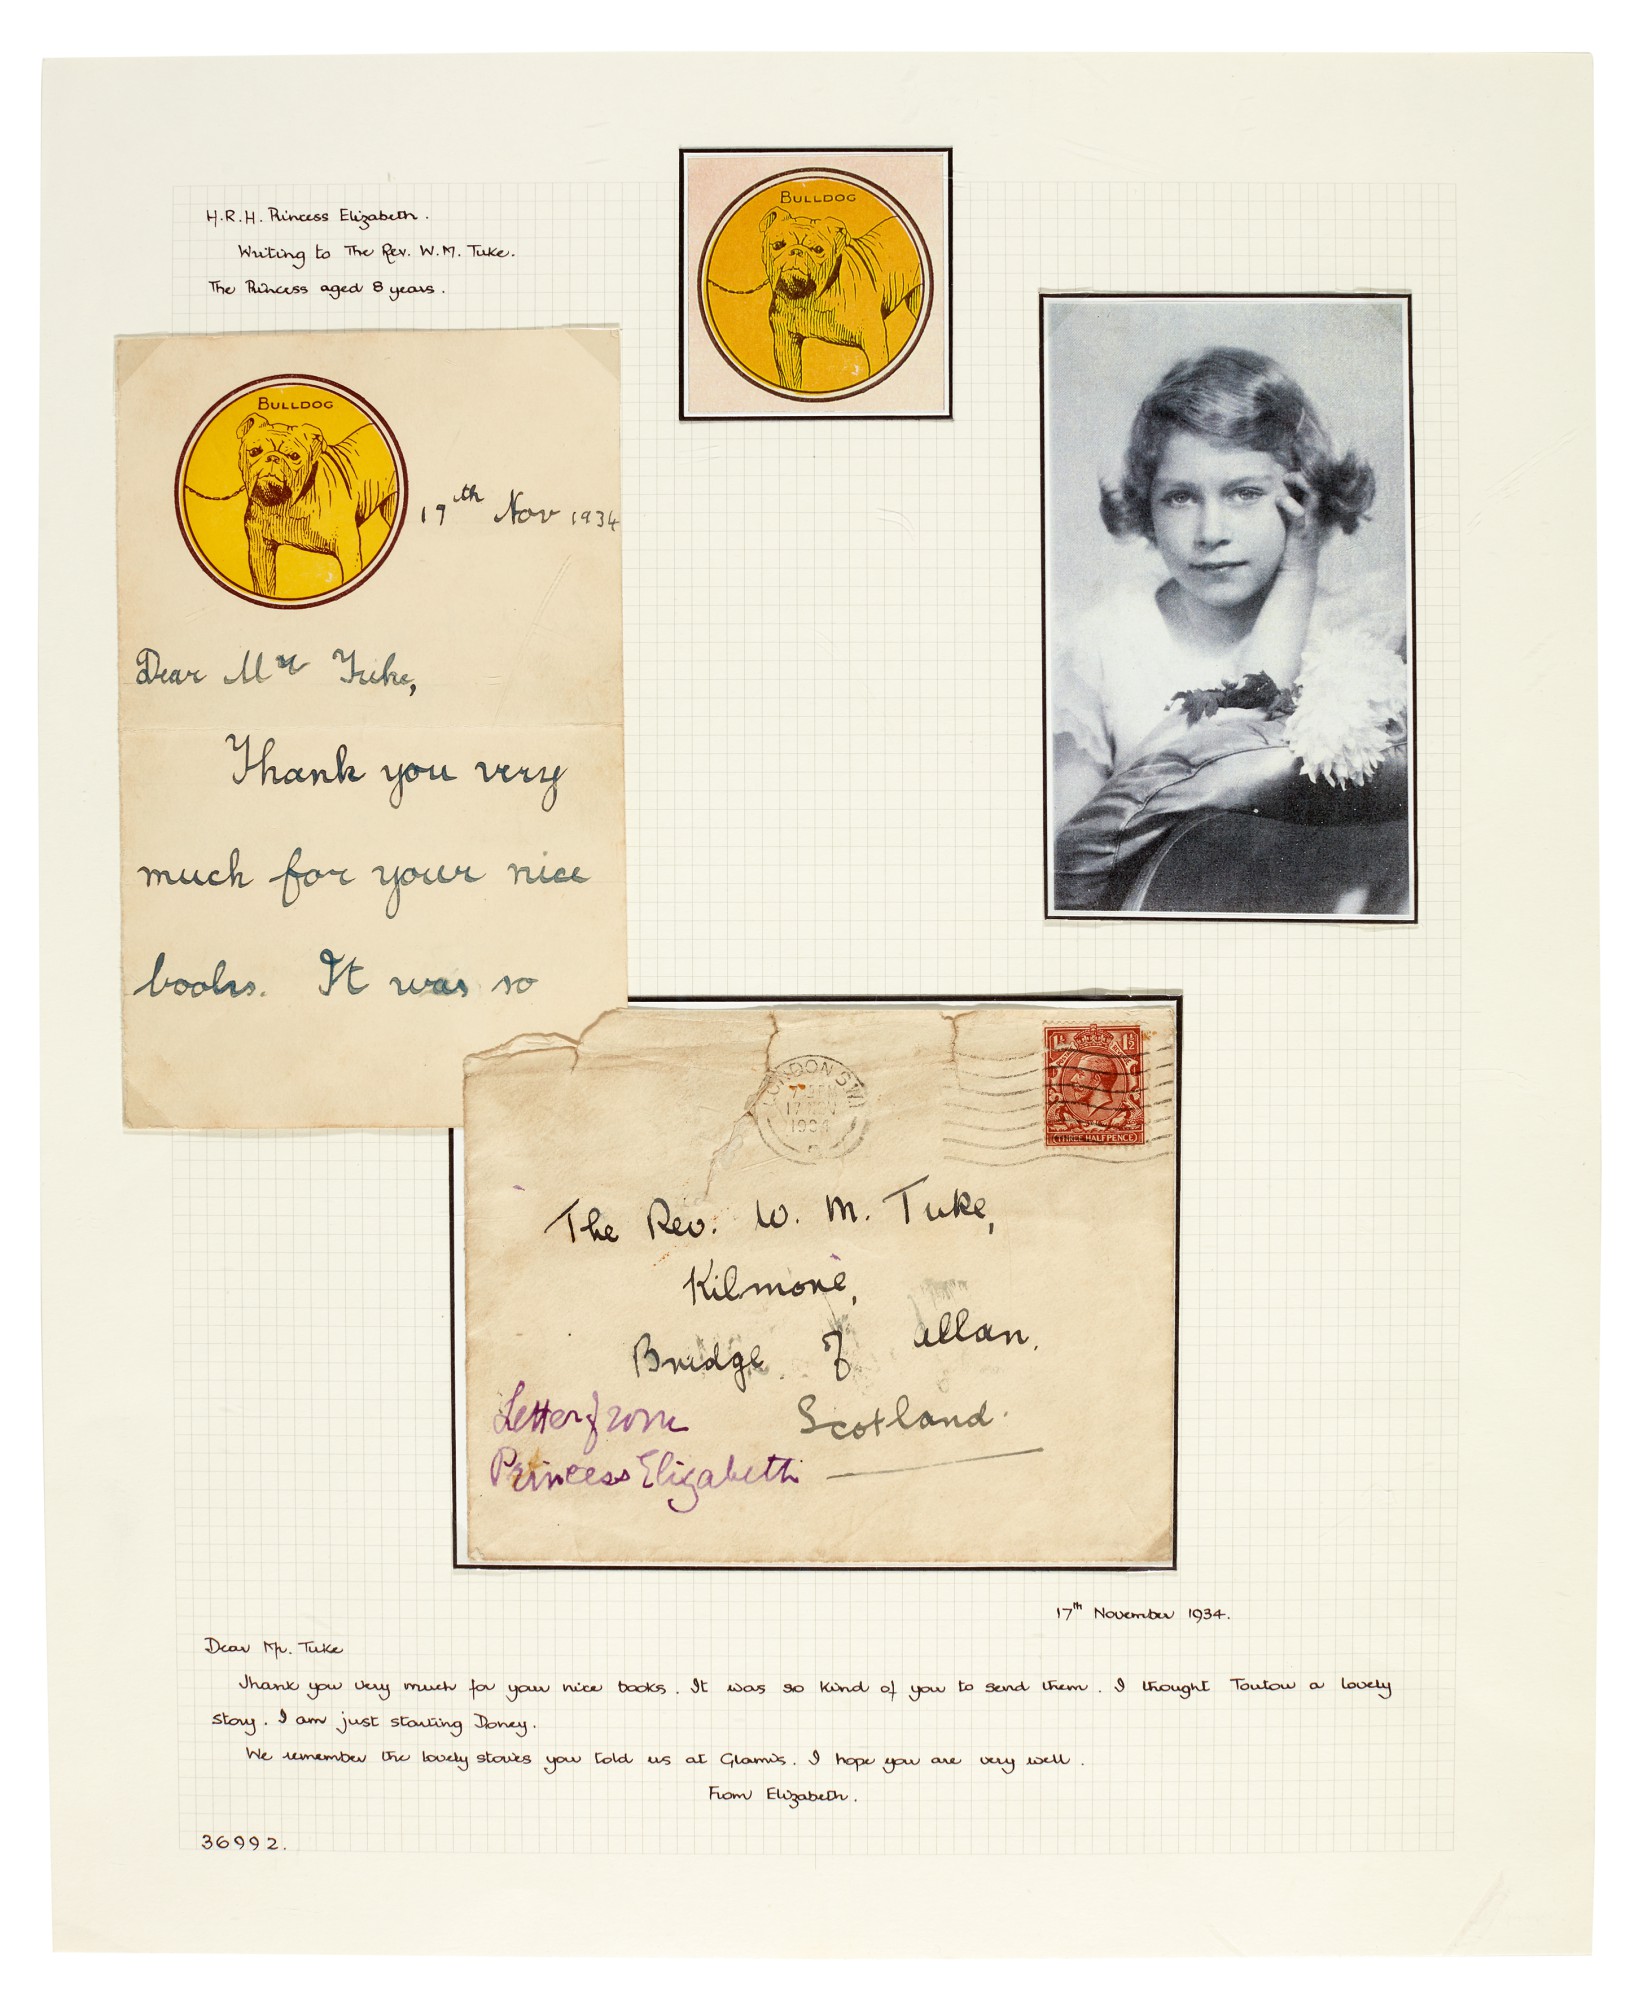 H.R.H. Princess Elizabeth.
Writing to The Rev. W.M. Tuke.
The Princess aged 8 years.
BULLDOG
BULLDOG
17th Nov 1934
Dear Mr Tuke,
Thank you very
much for your nice
books. It was so
LONDON S.W.1
17 NOV
1934
THREE HALFPENCE
The Rev. W. M. Tuke,
Kilmore,
Bridge of Allan.
Scotland.
Letter from
Princess Elizabeth
17th November 1934.
Dear Mr. Tuke
Thank you very much for your nice books. It was so kind of you to send them. I thought Toutou a lovely
story. I am just starting Doney.
We remember the lovely stories you told us at Glamis. I hope you are very well.
From Elizabeth.
36992.